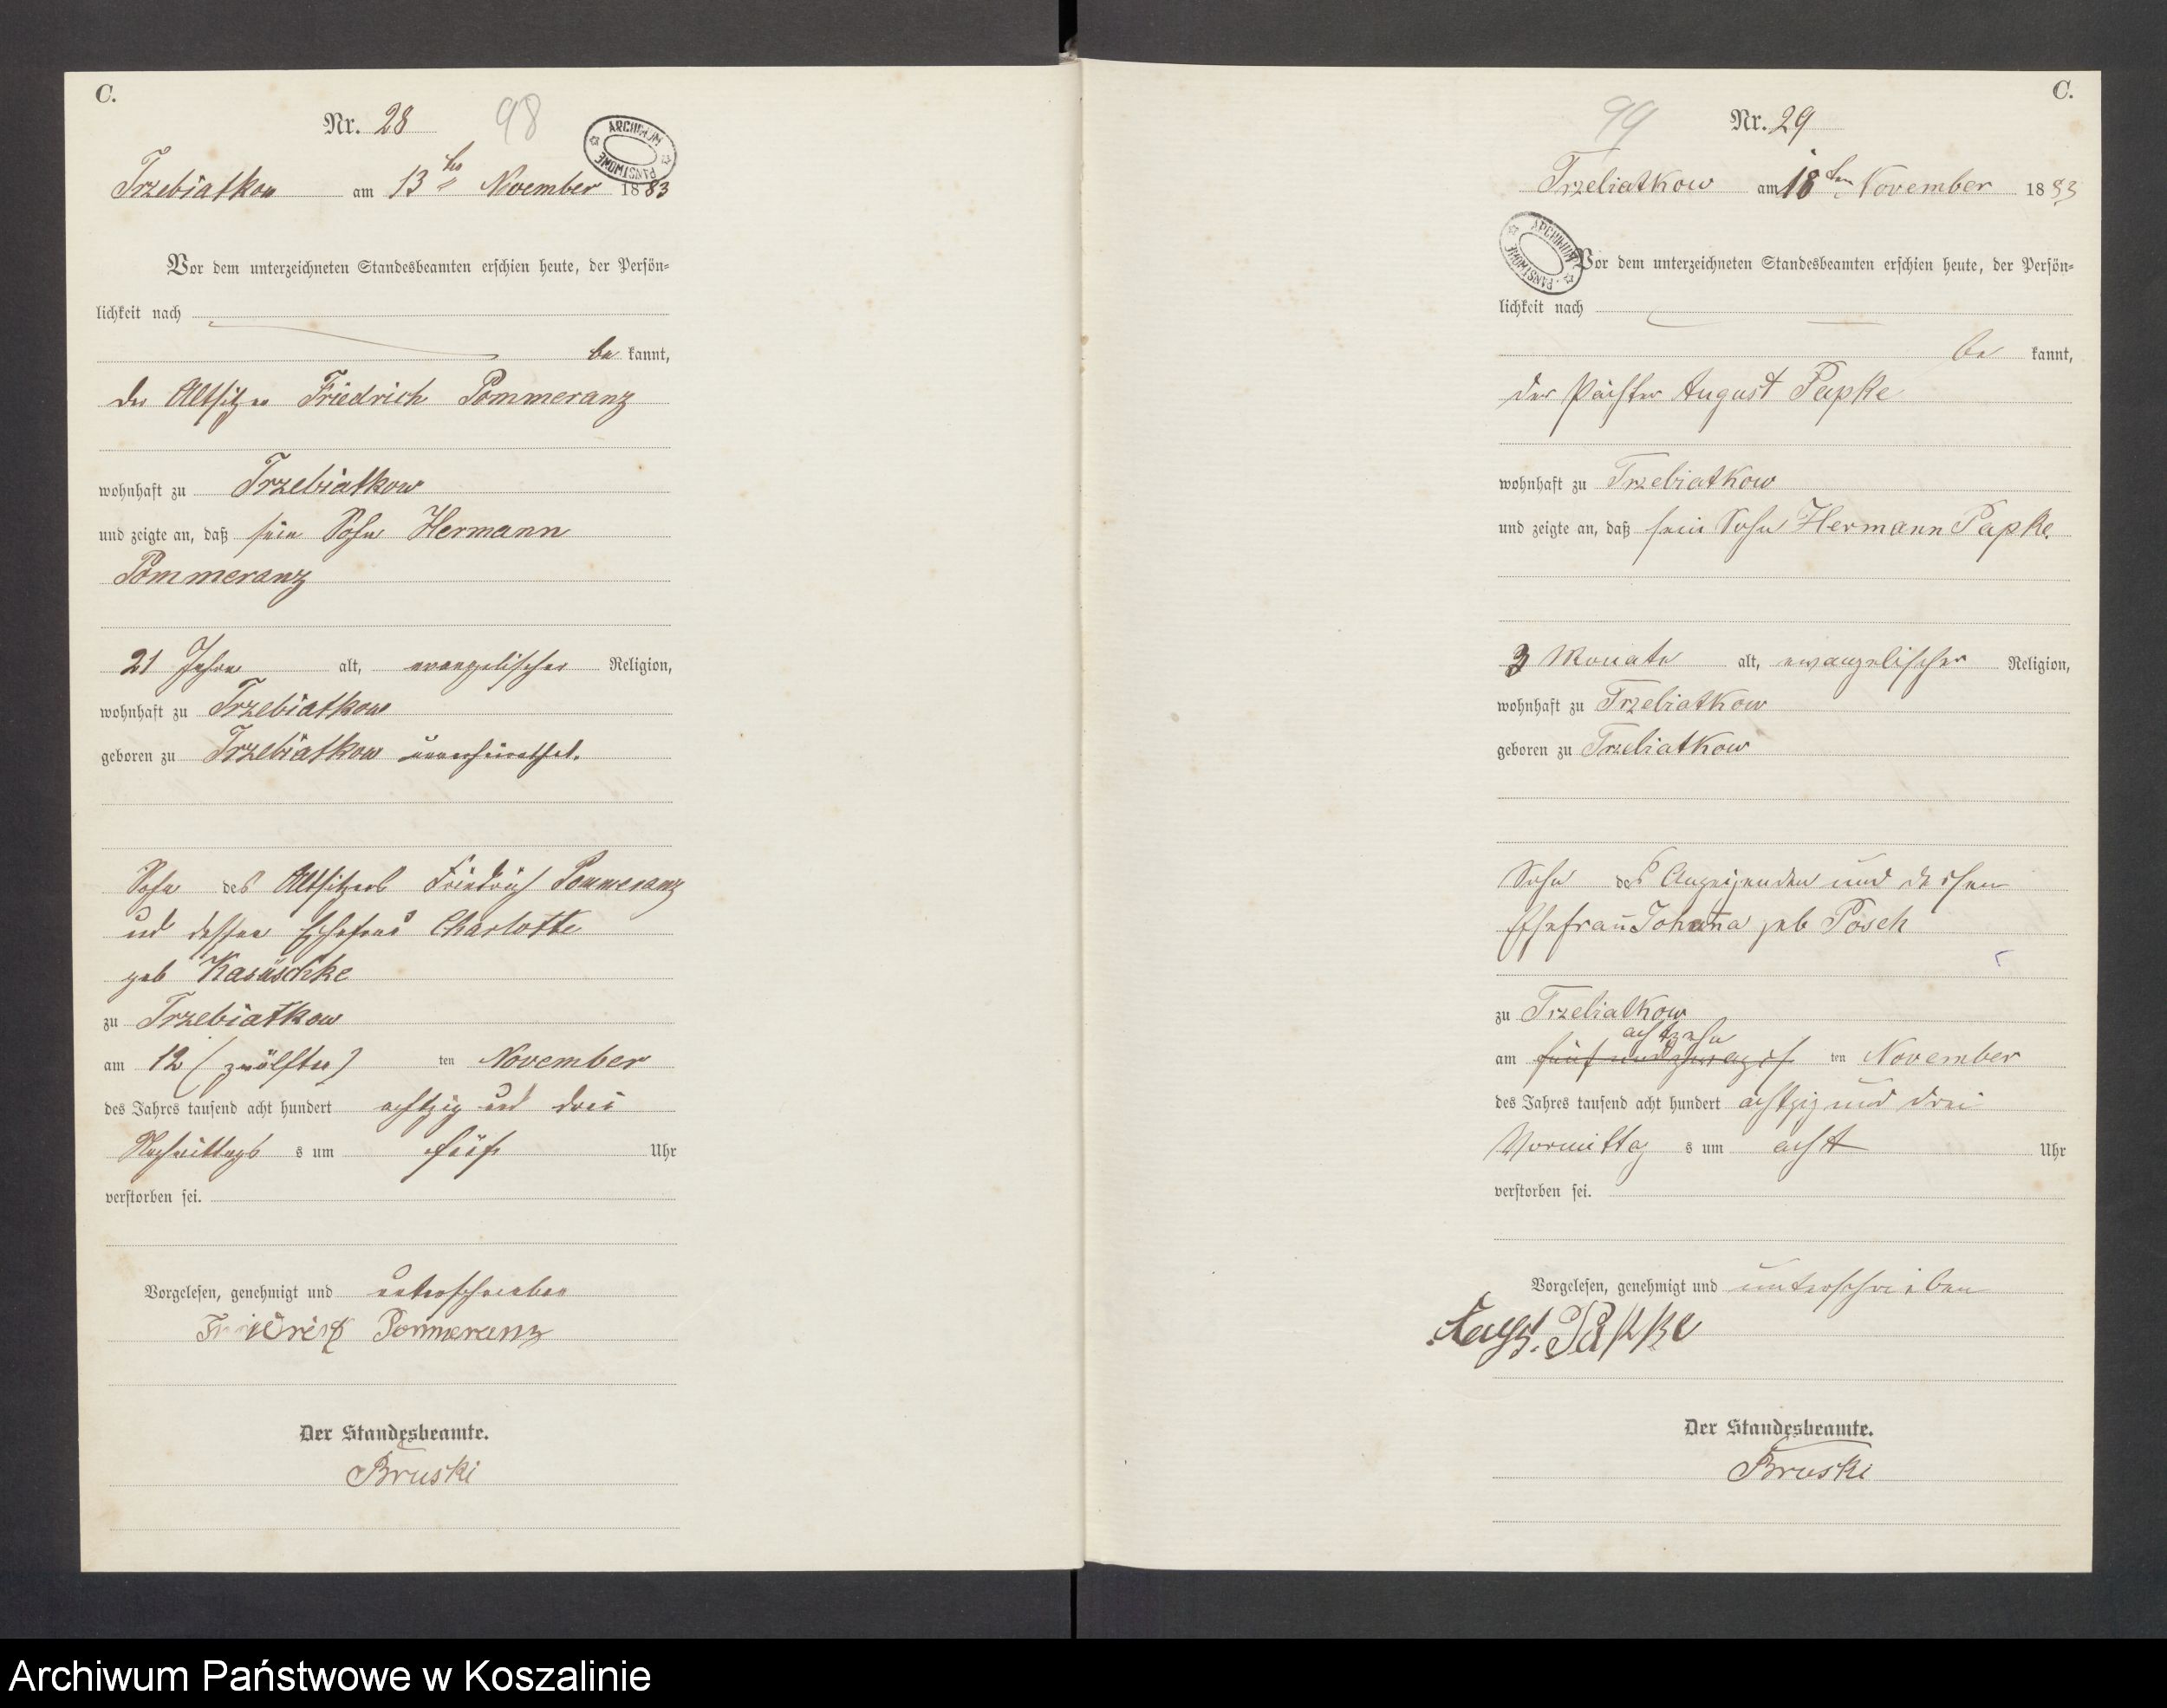 C.
Nr. 28
98
ARCHIWUM PAŃSTWOWE
Trzebiatkow am 13ten November 1883
Vor dem unterzeichneten Standesbeamten erschien heute, der Persön-
lichkeit nach
be kannt,
der Altsitzer Friedrich Pommeranz
wohnhaft zu Trzebiatkow
und zeigte an, daß sein Sohn Hermann
Pommeranz
21 Jahre alt, evangelischer Religion,
wohnhaft zu Trzebiatkow
geboren zu Trzebiatkow unverheirathet.
Sohn des Altsitzers Friedrich Pommeranz
und dessen Ehefrau Charlotte
geb
zu Trzebiatkow
am 12 (zwölften) ten November
des Jahres tausend acht hundert achtzig und drei
Nachmittags s um fünf Uhr
verstorben sei.
Vorgelesen, genehmigt und unterschrieben
Friedrich Pommeranz
Der Standesbeamte.
Bruski
C.
99
Nr. 29
Trzebiatkow am 18ten November 1883
ARCHIWUM PAŃSTWOWE
Vor dem unterzeichneten Standesbeamten erschien heute, der Persön-
lichkeit nach
be kannt,
der Pächter August Papke
wohnhaft zu Trzebiatkow
und zeigte an, daß sein Sohn Hermann Papke
3 Monate alt, evangelischer Religion,
wohnhaft zu Trzebiatkow
geboren zu Trzebiatkow
Sohn des Anzeigenden und dessen
Ehefrau Johanna geb Pösch
zu Trzebiatkow
achtzehn
am fünf und zwanzigs ten November
des Jahres tausend acht hundert achtzig und drei
Vormittag s um acht Uhr
verstorben sei.
Vorgelesen, genehmigt und unterschrieben
Augst. Papke
Der Standesbeamte.
Bruski
Archiwum Państwowe w Koszalinie